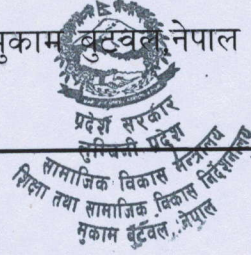 मुकाम बुटवल, नेपाल
प्रदेश सरकार
लुम्बिनी प्रदेश
सामाजिक विकास मन्त्रालय
शिक्षा तथा सामाजिक विकास निर्देशनालय
मुकाम बुटवल, नेपाल